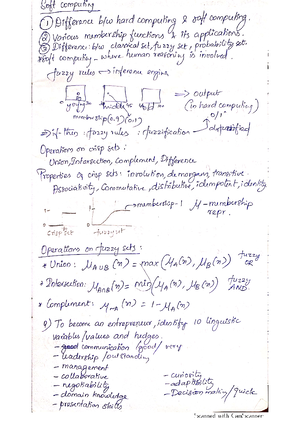 Soft computing
① Difference b/w hard computing & soft computing.
② Various membership functions & its applications.
③ Difference b/w classical set, fuzzy set, probability set.
soft computing - where human reasoning is involved.
fuzzy rules ↔ inference engine
young middle old ⇒ output
(in hard computing)
membership (0.9) (0.1) 0/1
fuzzy rules : fuzzification defuzzified
Operations on crisp sets :
Union, Intersection, Complement, Difference
Properties of crisp sets : involution, demorgan, transitive
Associativity, Commutative, distributive, idempotent, identity
membership-1 μ-membership
repr.
crisp set fuzzy set
Operations on fuzzy sets :
* Union : μA∪B (x) = max (μA(x), μB(x)) fuzzy OR
* Intersection : μA∩B(x) = min (μA(x), μB(x)) fuzzy AND
* Complement : μ¬A (x) = 1 - μA(x)
Q) To become an entrepreneur, identify 10 linguistic
variables/values and hedges.
- good communication /good/ very
- leadership / outstanding
- management
- collaborative
- curiosity
- negotiability
- adaptability
- domain knowledge
- Decision making / quick
- presentation skills
Scanned with CamScanner